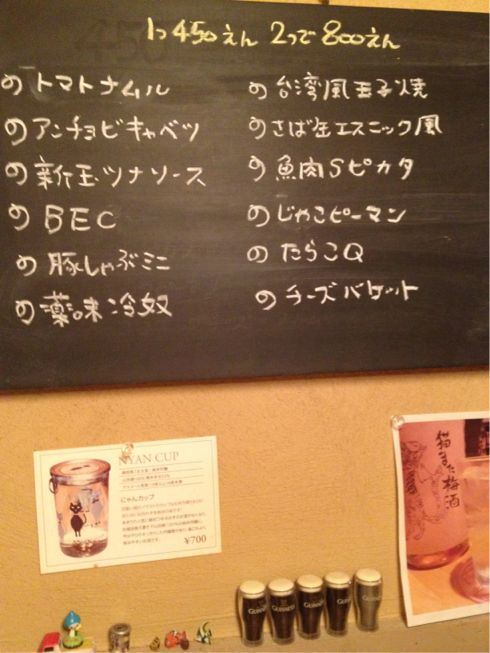 1つ450えん 2つで800えん
の トマトナムル
の アンチョビキャベツ
の 新玉ツナソース
の BEC
の 豚しゃぶミニ
の 薬味冷奴
の 台湾風玉子焼
の さば缶エスニック風
の 魚肉Sピカタ
の じゃこピーマン
の たらこQ
の チーズバケット
NYAN CUP
にゃんカップ
¥700
猫また梅酒
GUINNESS